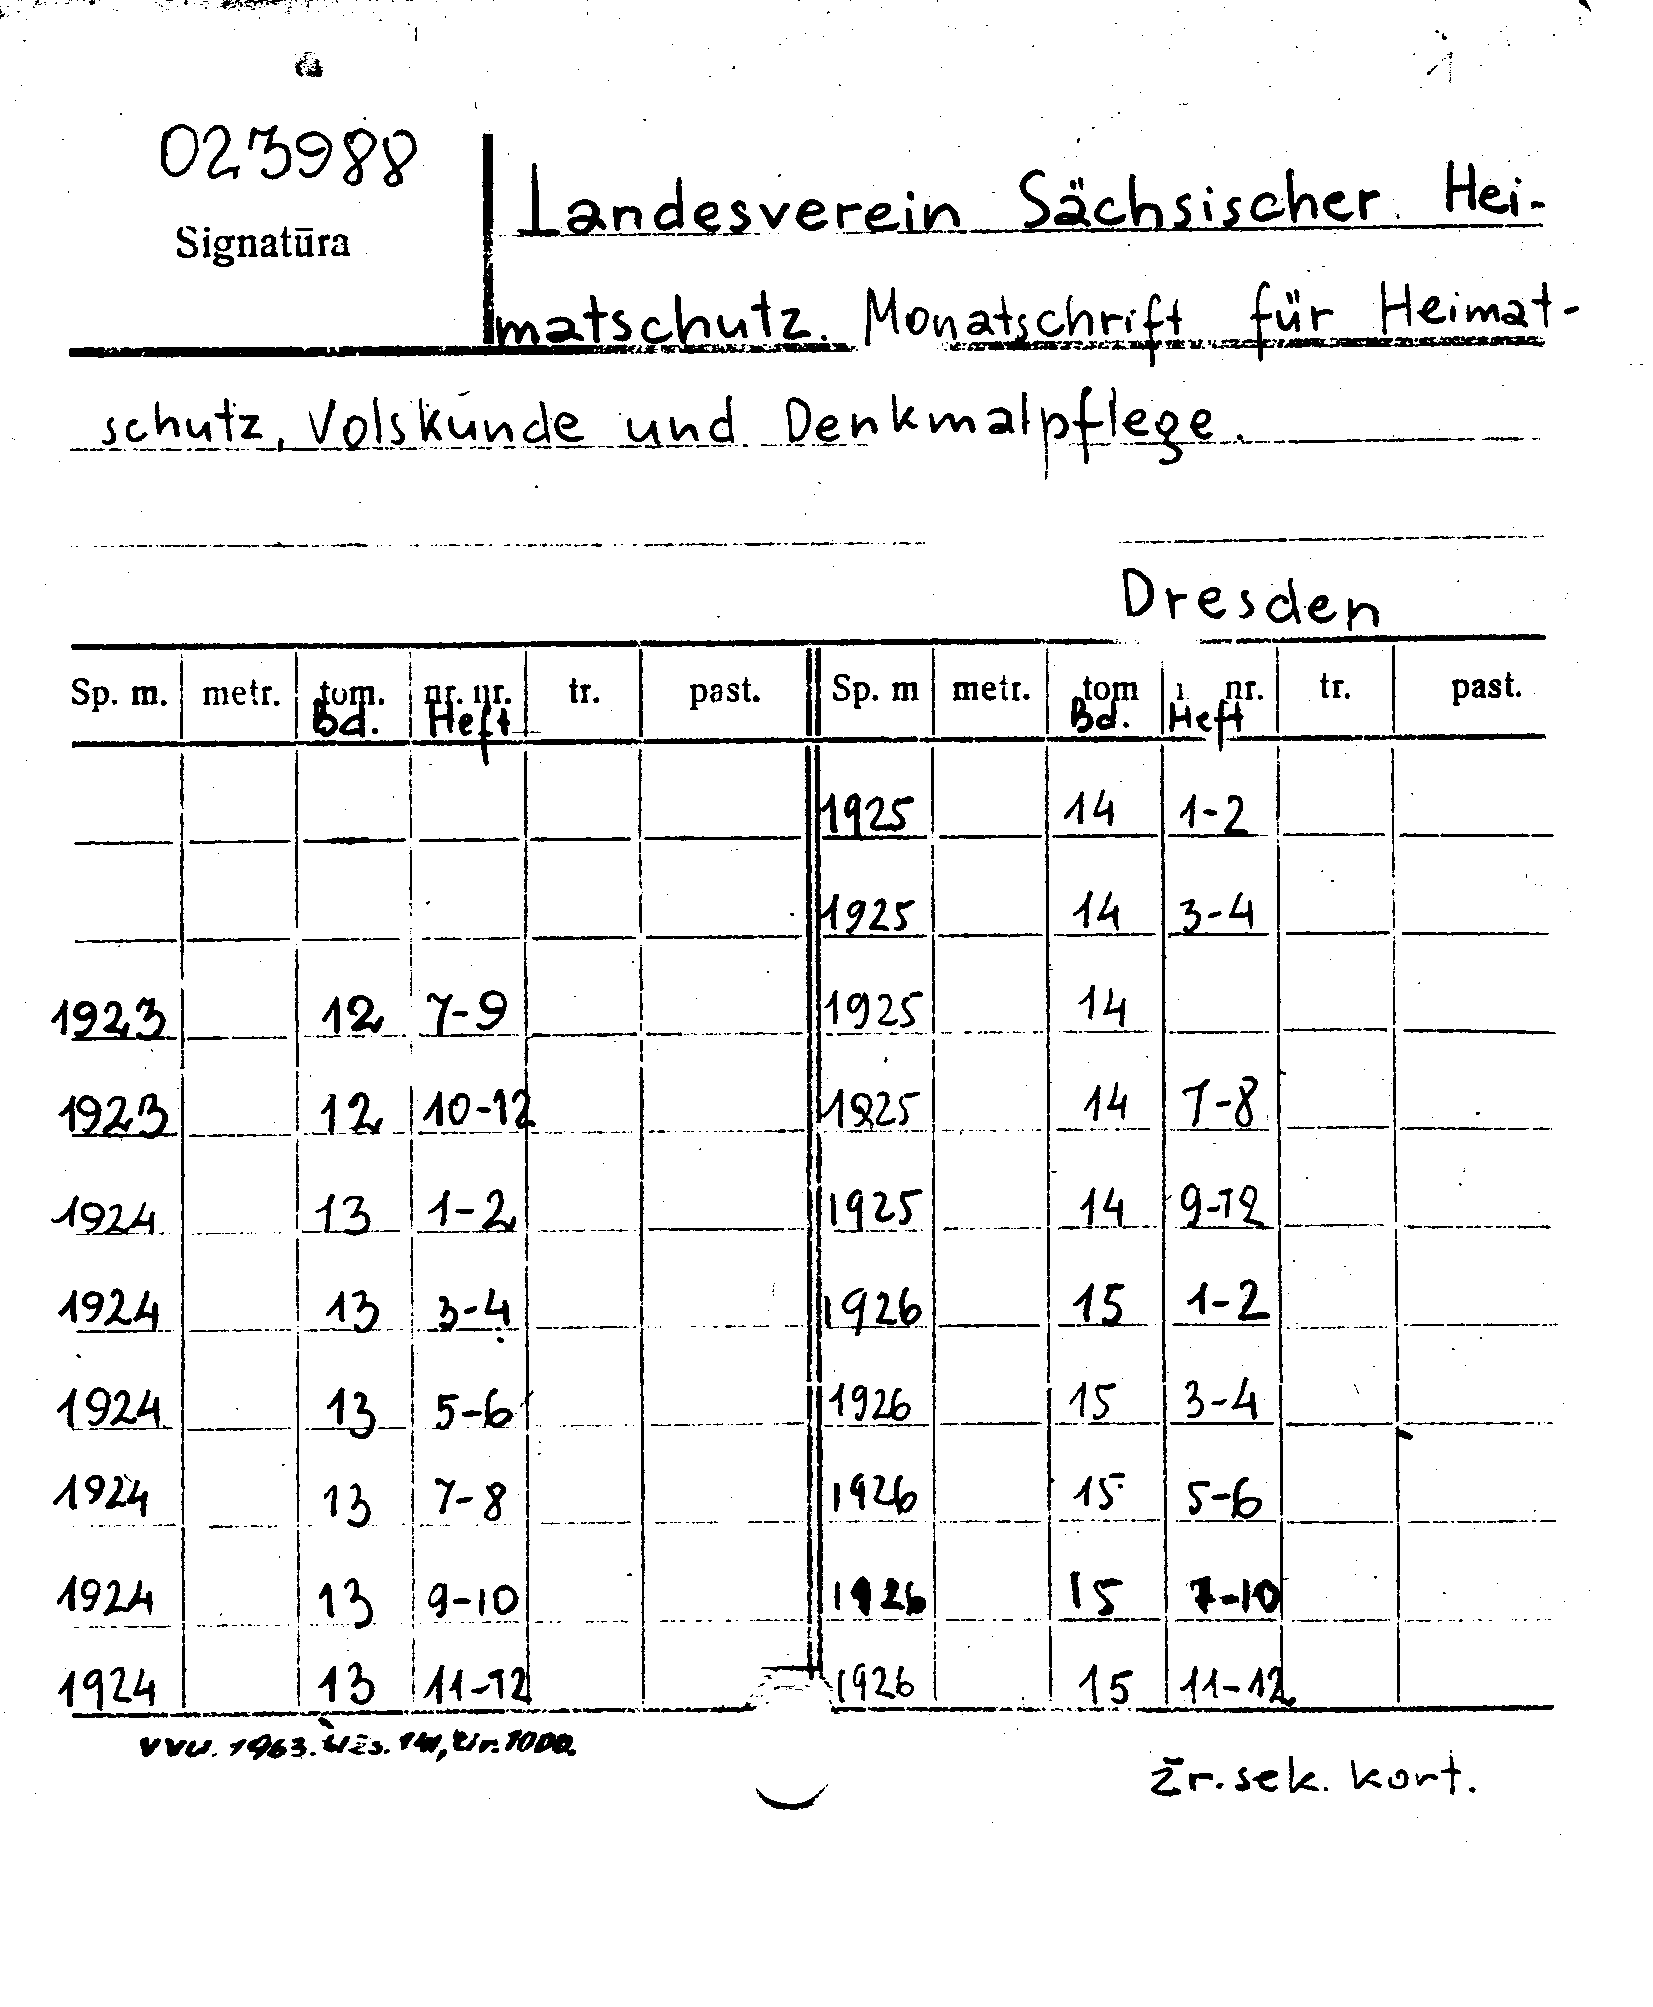 1
023988
Signatūra
Landesverein Sächsischer Hei-
matschutz. Monatschrift für Heimat-
schutz, Volskunde und Denkmalpflege.
Dresden
Sp. m. metr. tom. nr. nr. tr. past. Sp. m metr. tom nr. tr. past.
Bd. Heft Bd. Heft
1925 14 1-2
1925 14 3-4
1923 12 7-9 1925 14
1923 12 10-12 1925 14 7-8
1924 13 1-2 1925 14 9-12
1924 13 3-4 1926 15 1-2
1924 13 5-6 1926 15 3-4
1924 13 7-8 1926 15 5-6
1924 13 9-10 1926 15 7-10
1924 13 11-12 1926 15 11-12
VVU. 1963. 1000.
žr. sek. kort.